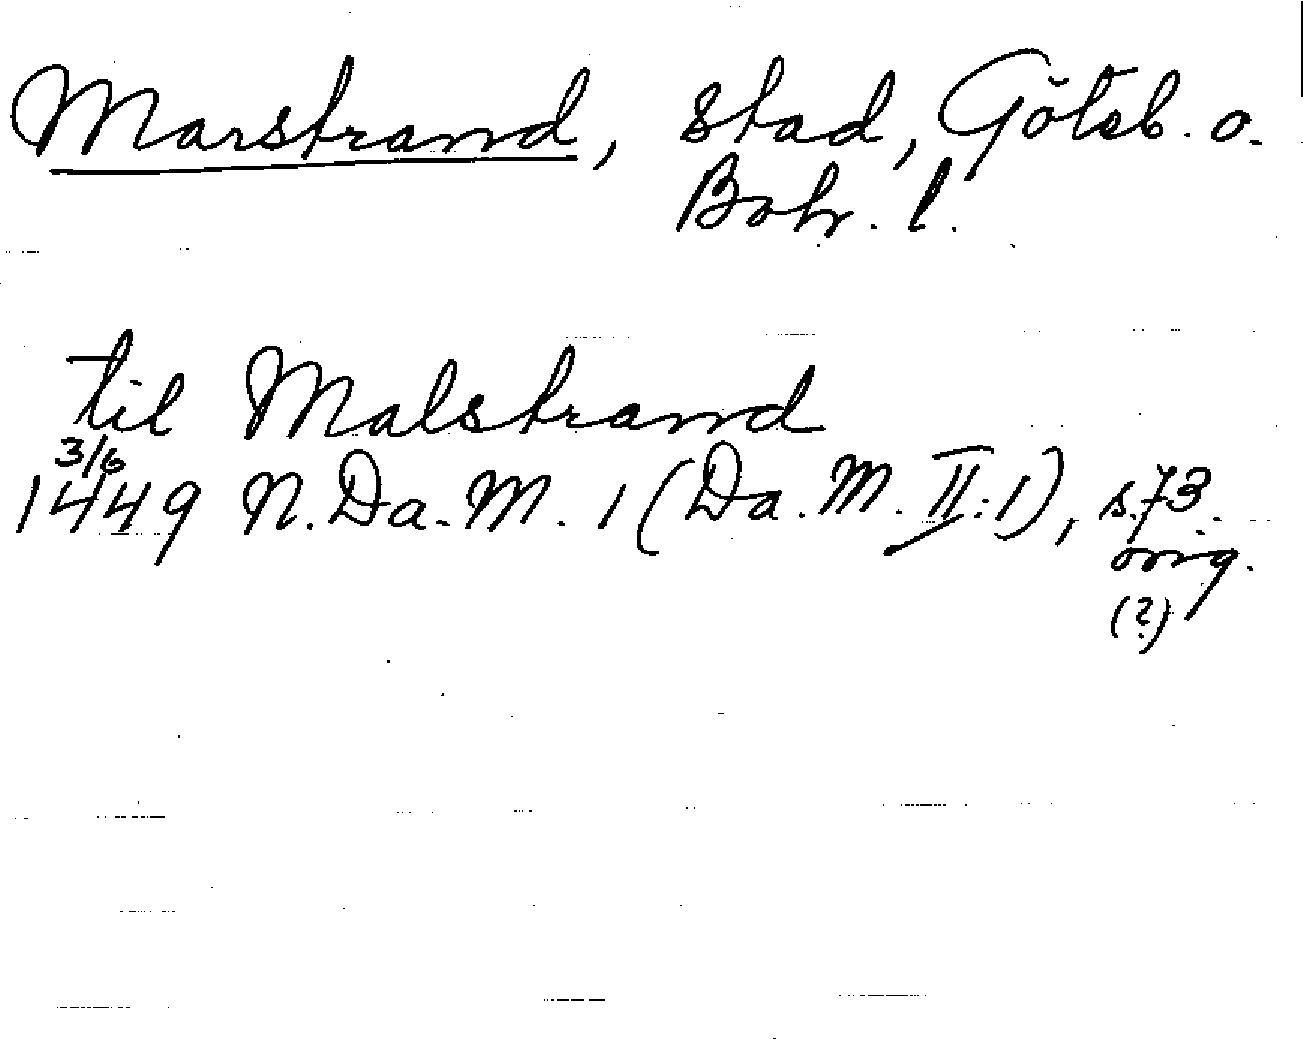 Marstrand, stad, Göteb. o.
Boh. l.
til Malstrand
3/6
1449 N. Da. M. 1 (Da. M. II:1), s. 73.
orig.
(?)